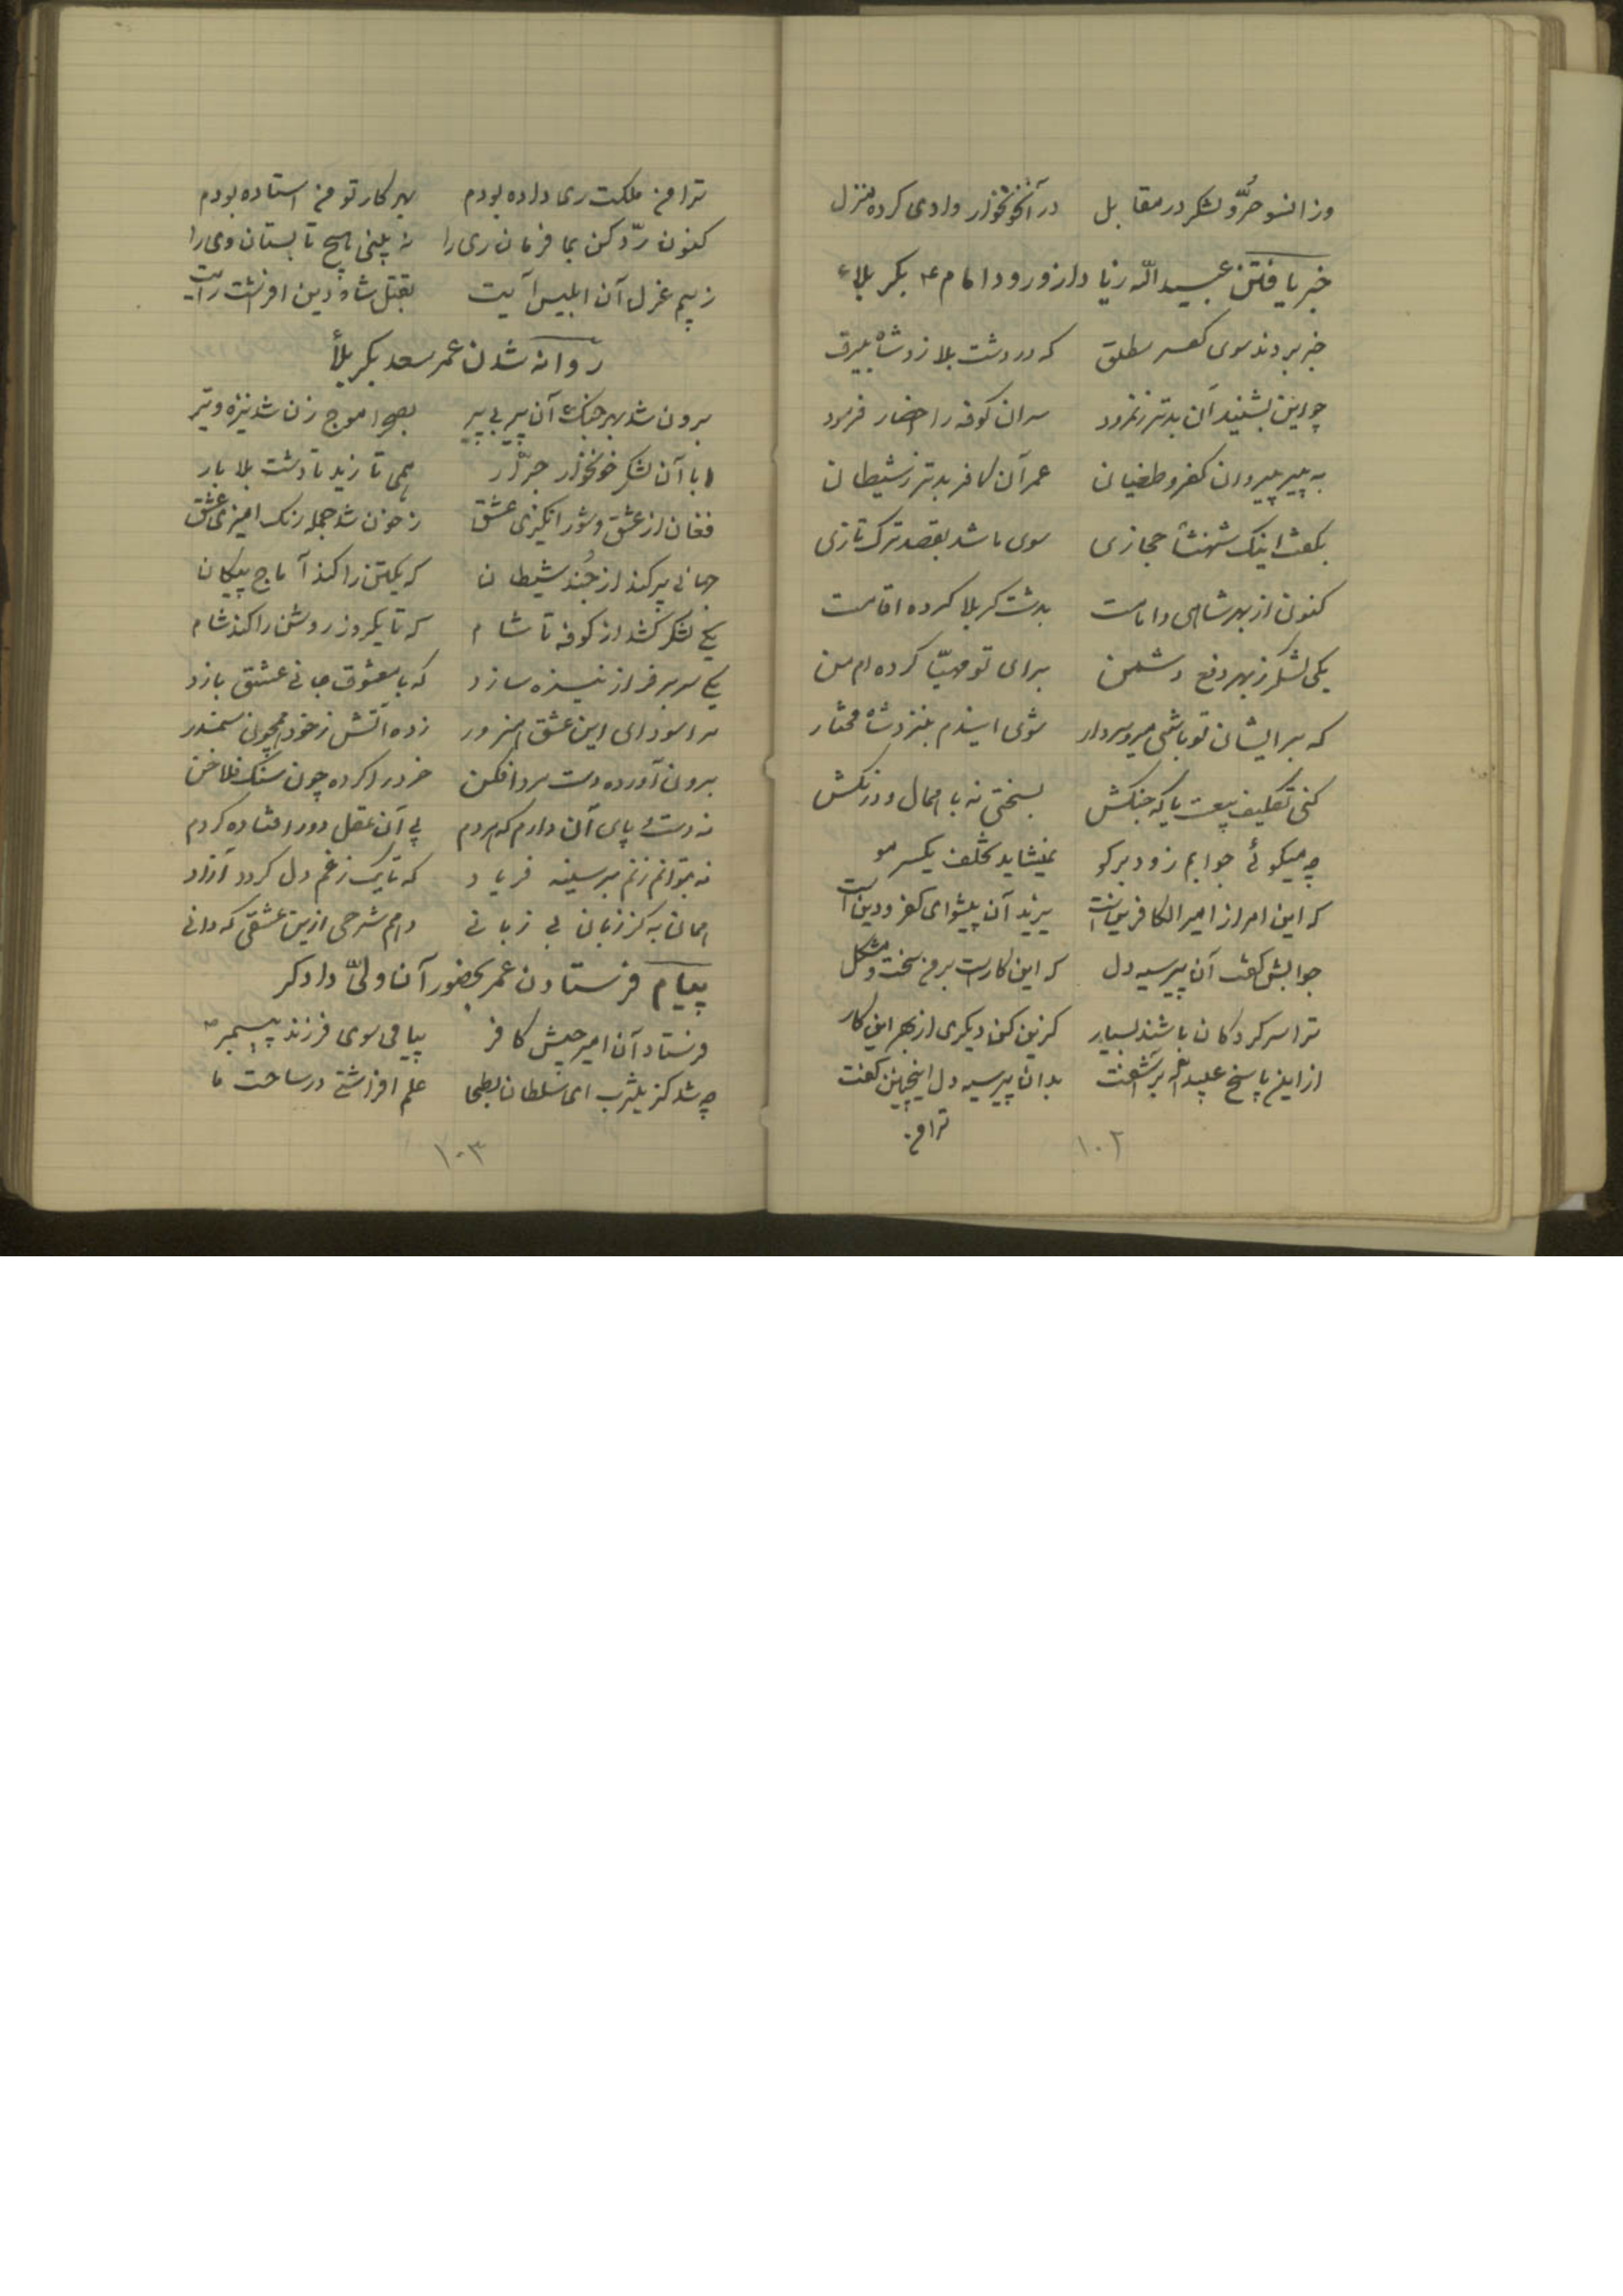 وزانسو حُرّ و لشکر در مقابل در آنخونخوار وادی کرده منزل
خبر یافتن عبیدالله زیاد از ورود امام ع بکربلاء
خبر بردند سوی کفر مطلق که در دشت بلا زد شاه بیرق
چو این بشنید آن بدتر ز نمرود سران کوفه را احضار فرمود
به پیر پیروان کفر و طغیان عمر آن کافر بدتر ز شیطان
بگفت اینک شهنشاه حجازی سوی ما شد بقصد ترک تازی
کنون از بهر شاهی و امامت بدشت کربلا کرده اقامت
یکی لشکر ز بهر دفع دشمن برای تو مهیّا کرده ام من
که بر ایشان تو باشی میر و سردار شوی ایندم بنزد شاه مختار
کنی تکلیف بیعت یا که جنگش بسختی نه با همال و درنگش
چه میگوئی جوابم زود برگو نمیشاید تخلف یکسر مو
که این امر از امیر الکافرین است یزید آن پیشوای کفر و دین است
جوابش گفت آن پیر سیه دل که این کار است بر من سخت و مشکل
ترا سرکردگان باشند بسیار گزین کن دیگری از بهر این کار
از این پاسخ عبیدالله برآشفت بدان پیر سیه دل اینچنین گفت
ترا من
۱۰۲
ترا من ملکت ری داده بودم بهر کار تو من استاده بودم
کنون ردّ کن بما فرمان ری را نه بینی هیچ تابستان و دی را
ز بیم عزل آن ابلیس آیت بقتل شاه دین افرشت رایت
روانه شدن عمر سعد بکربلأ
برون شد بهر جنگ آن پیر بی پیر بصحرا موج زن شد نیزه و تیر
ابا آن لشکر خونخوار جرّار همی تازید تا دشت بلا بار
فغان از عشق و شور انگیزی عشق ز خون شد جمله رنگ امیزی عشق
جهانی پر کند از جُند شیطان که یکتن را کند آماج پیکان
یکی لشکر کشد از کوفه تا شام که تا یکروز روشن را کند شام
یکی سر بر فراز نیزه سازد که با معشوق جانی عشق بازد
سراسودای این عشق زده آتش ز خود همچون سمندر
برون آورده دست مرد افکن خرد را کرده چون سنگ فلاخن
نه دست و پای آن دارم که هردم پی آن عقل دور افتاده گردم
نه بتوانم زنم بر سینه فریاد که تا یک ز غم دل گردد آزاد
همان به کز زبان بی زبانی دهم شرحی ازین عشقی که دانی
پیام فرستادن عمر بحضور آن ولیّ دادگر
فرستاد آن امیر جیش کافر پیامی سوی فرزند پیمبر ص
چه شد کز یثرب ای سلطان بطحا علم افراشتی در ساحت ما
۱۰۳